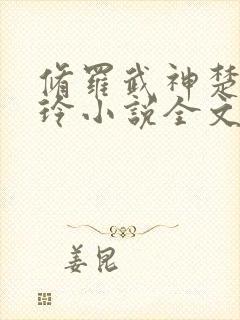 脩羅武神楚
玲小說全文
姜昆